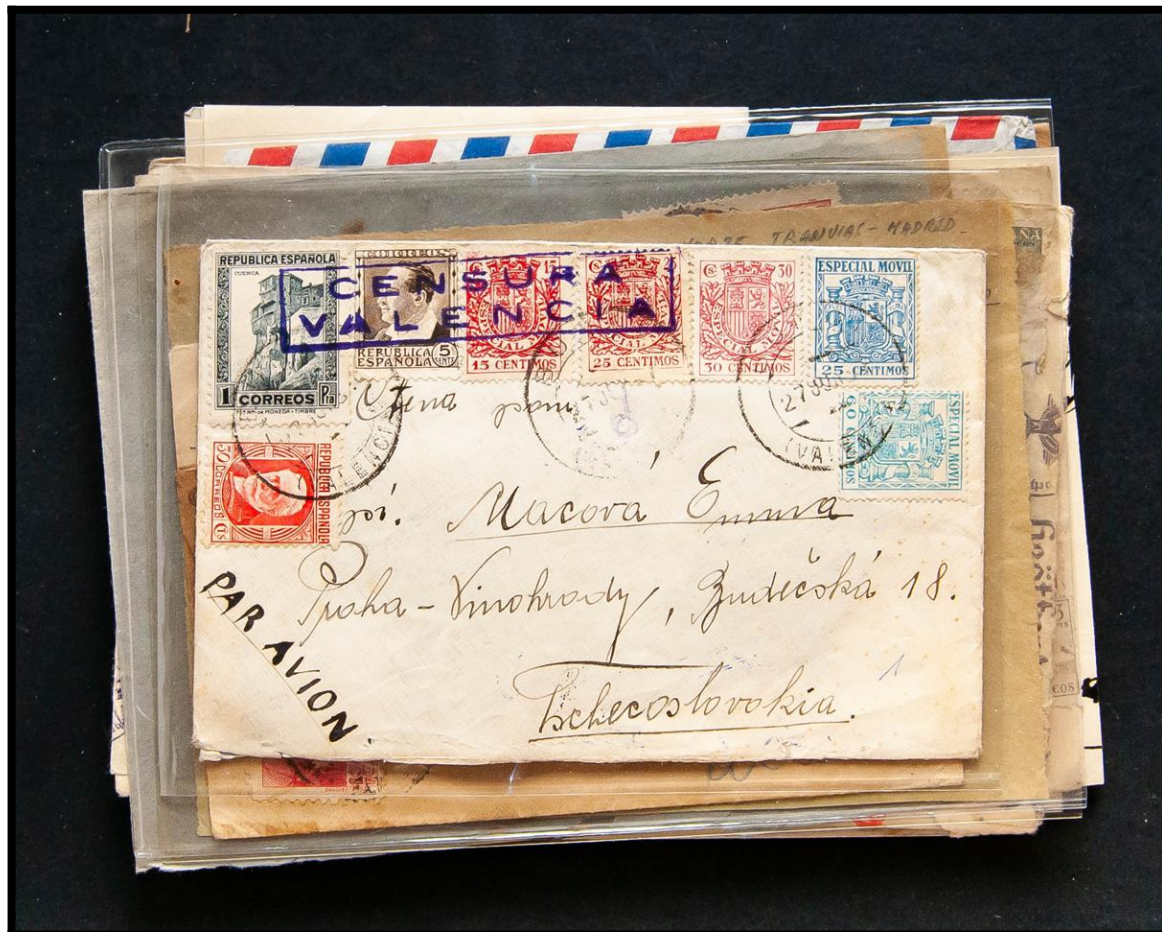 TRANVIAS - MADRID.
REPUBLICA ESPAÑOLA
CUENCA
1 Pta
CORREOS
CENSURA
VALENCIA
REPUBLICA
ESPAÑOLA
5
CENTS
15
15 CENTIMOS
25 CENTIMOS
30
ESPECIAL MOVIL
30 CENTIMOS
ESPECIAL MOVIL
25 CENTIMOS
ESPECIAL MOVIL
60
REPUBLICA ESPAÑOLA
30 CORREOS CTS
Macová Emma
Praha - Vinohrady, Budečská 18.
Tschecoslovakia.
PAR AVION